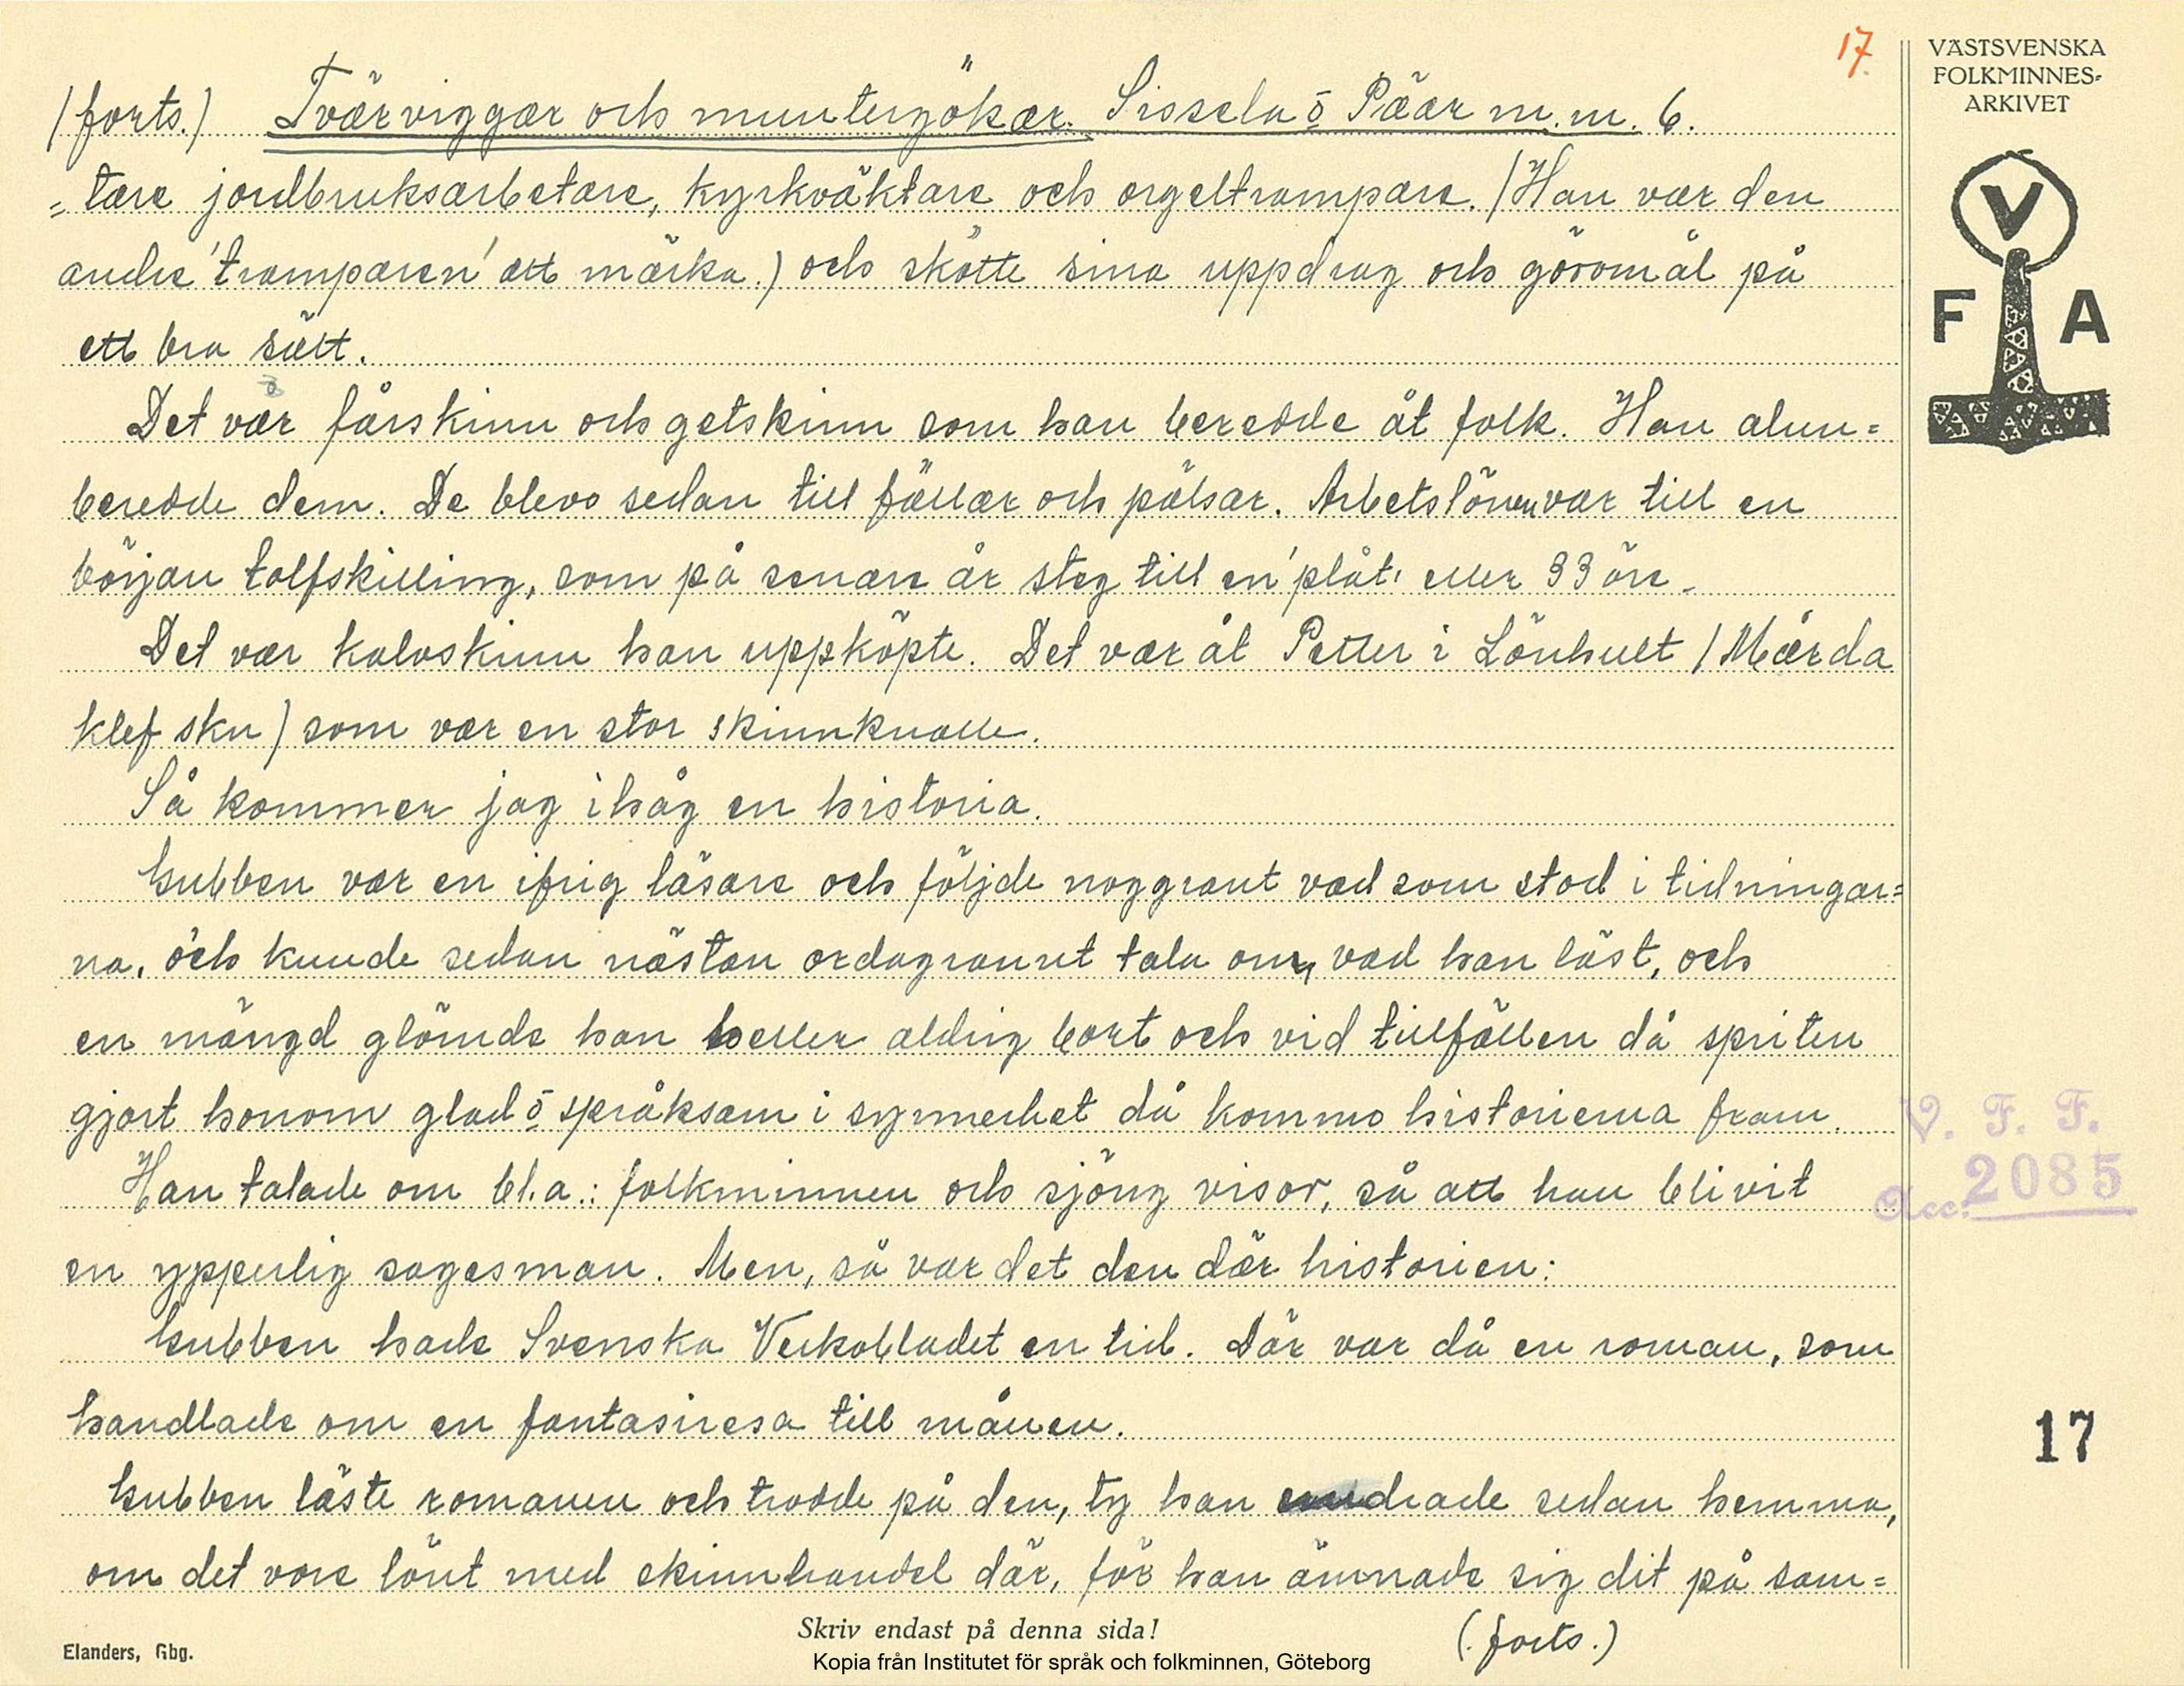 17.
VÄSTSVENSKA
FOLKMINNES-
ARKIVET
V
F A
(forts.) Tvärviggar och muntergökar. Sissela ö Päär m.m. 6.
=tare jordbruksarbetare, kyrkväktare och orgeltrampare. (Han var den
andre 'tramparen' att märka.) och skötte sina uppdrag och göromål på
ett bra sätt.
Det var fårskinn och getskinn som han beredde åt folk. Han alun=
beredde dem. De blevo sedan till fällar och pälsar. Arbetslönen var till en
början tolfskilling, som på senare år steg till en 'plåt' eller 33 öre.
Det var kalvskinn han uppköpte. Det var åt Petter i Lönhult (Mårda
klef skn) som var en stor skinnknalle.
Så kommer jag ihåg en historia.
Gubben var en ifrig läsare och följde noggrant vad som stod i tidningar=
na, och kunde sedan nästan ordagrannt tala om, vad han läst, och
en mängd glömde han heller aldrig bort och vid tillfällen då spriten
gjort honom glad ö språksam i synnerhet då kommo historierna fram.
Han talade om bl.a.: folkminnen och sjöng visor, så att han blivit
en ypperlig sagesman. Men, så var det den där historien:
Gubben hade Svenska Veckobladet en tid. Där var då en roman, som
handlade om en fantasiresa till månen.
Gubben läste romanen och trodde på den, ty han undrade sedan hemma,
om det vore lönt med skinnhandel där, för han ämnade sig dit på som=
(forts.)
V. F. F.
Acc: 2085
17
Skriv endast på denna sida!
Elanders, Gbg.
Kopia från Institutet för språk och folkminnen, Göteborg